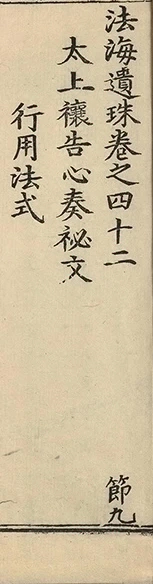 法海遺珠卷之四十二 節九
太上禳告心奏祕文
行用法式